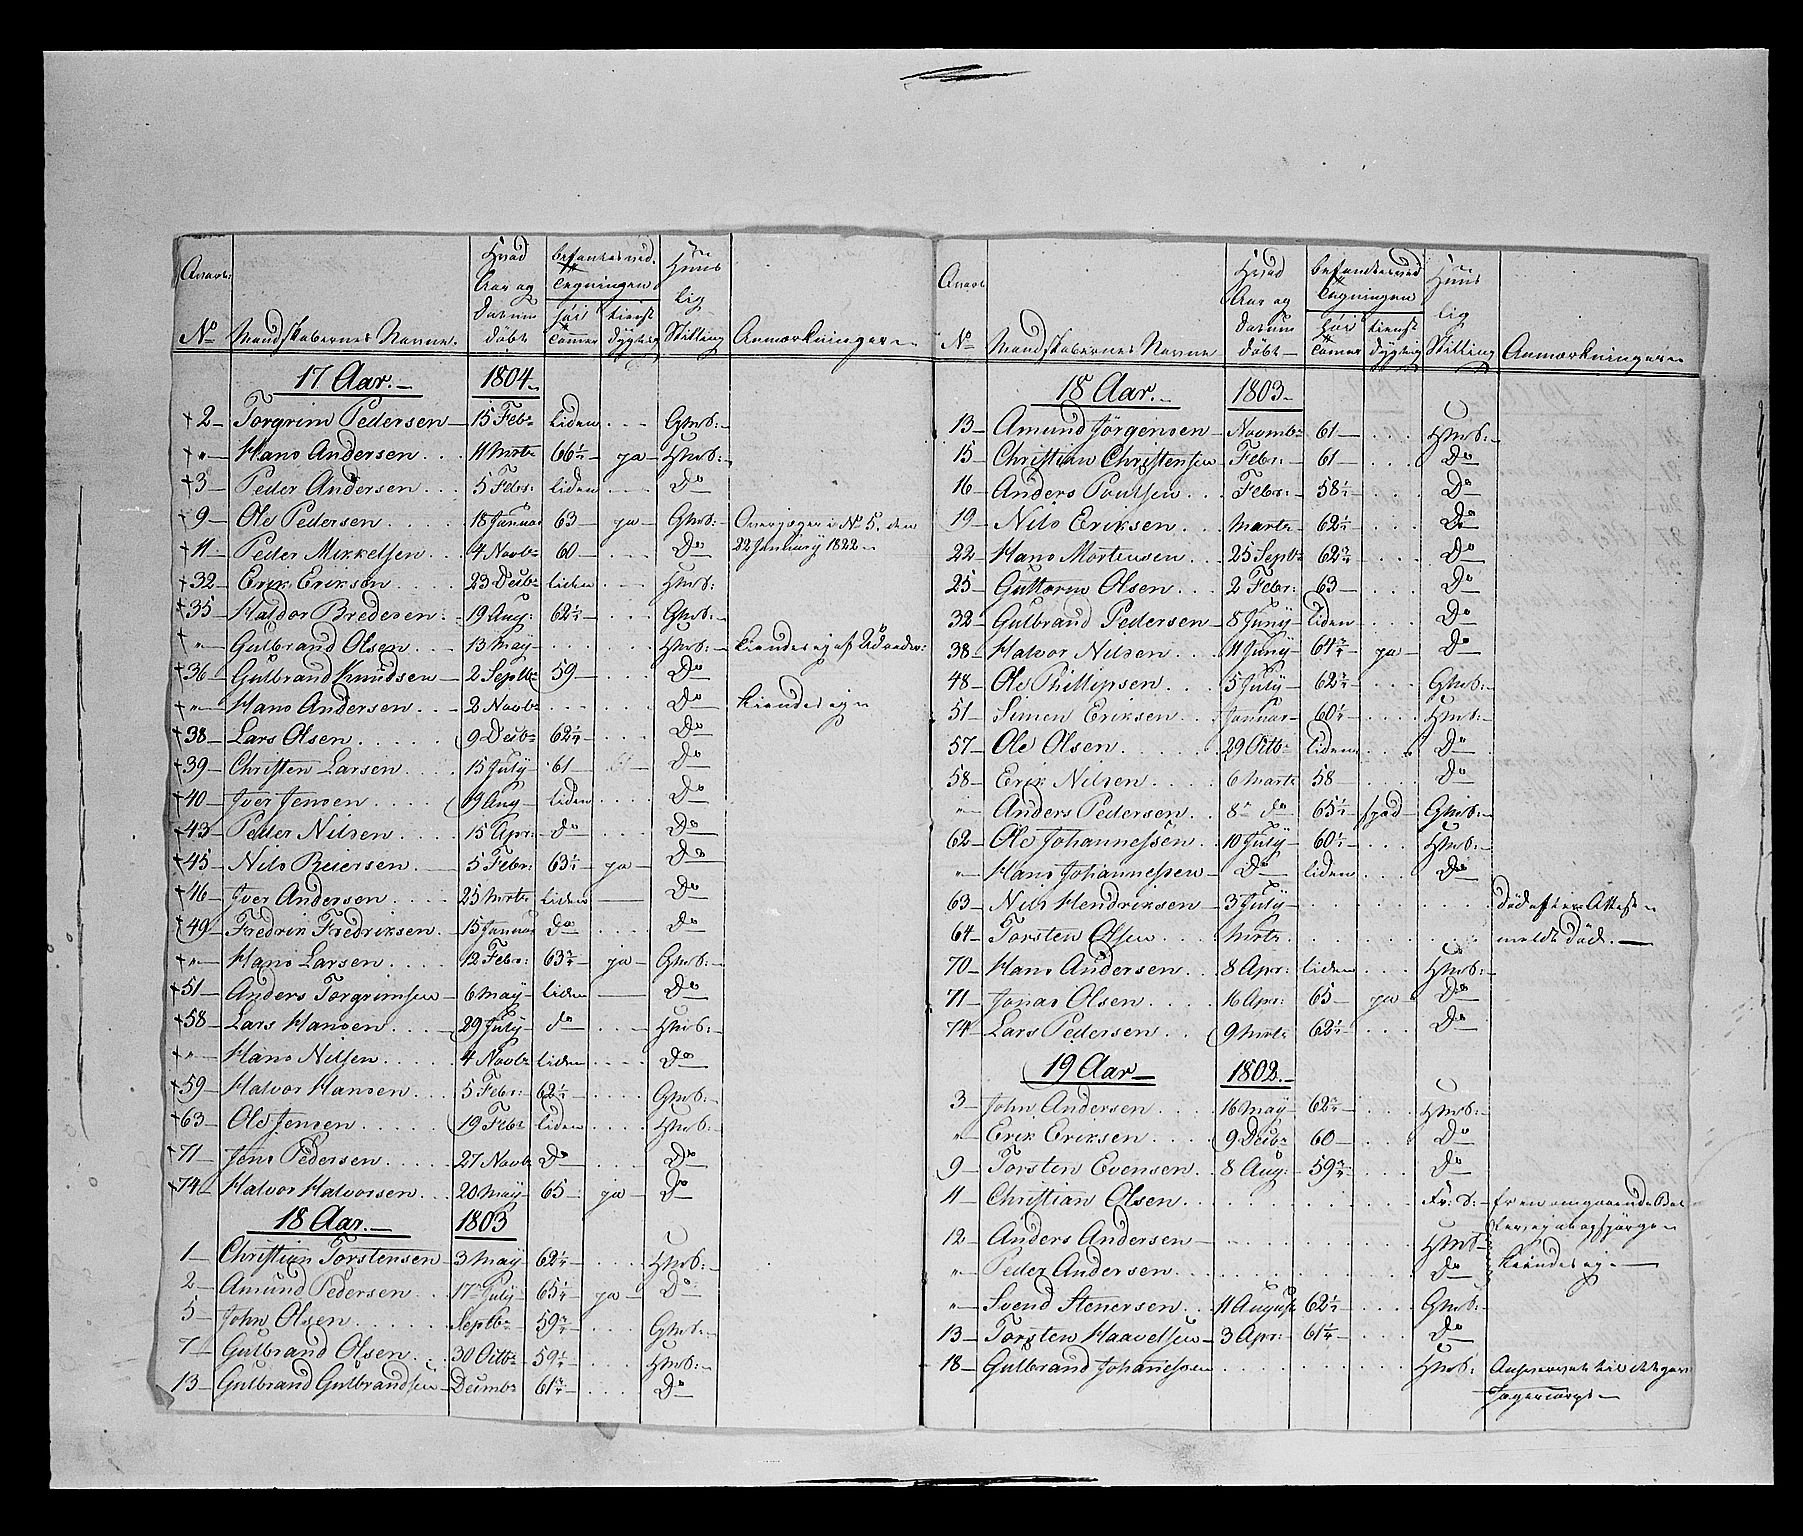 Qvart: No | Mandskabernes Navne. | Hvad Aar og Datum døbt | befandtes ved Tegningen: høi Tommer | tienst dygtig | Huus lig Stilling | Anmærkninger
17 Aar. 1804
2 Torgrim Pedersen 15 Febr liden Gmd:
" Hans Andersen 11 Marts 66 1/2 ja Hmd:
3 Peder Andersen 5 Febr: liden Do
9 Ole Pedersen 18 Januar 63 ja Gmd: Overjæger i No 5. den
22 January 1822
11 Peder Mikkelsen 4 Novbr 60 Do
32 Erik Eriksen 23 Decbr liden Hmd:
35 Haldor Bredesen 19 Aug: 62 1/4 Gmd:
" Gulbrand Olsen 13 May Hmd: kiendes ej af
36 Gulbrand Knudsen 2 Septbr 59 Do
" Hans Andersen 2 Novbr Do kiendes ej
38 Lars Olsen 9 Decbr 62 1/4 Do
39 Christen Larsen 15 July 61 Do
40 Iver Jensen 19 Aug liden Do
43 Peder Nilsen 15 Apr: do Do
45 Nils Reiersen 5 Febr: 63 1/4 ja Do
46 Iver Andersen 25 Marts liden Do
49 Fredrik Fredriksen 15 Januar do Do
" Hans Larsen 12 Febr: 63 3/4 ja Gmd:
51 Anders Torgrimsen 6 May liden Do
58 Lars Hansen 29 July do Hmd:
" Hans Nilsen 4 Novbr liden Do
59 Halvor Hansen 5 Febr: 62 1/2 Gmd:
63 Ole Jensen 19 Febr liden Hmd:
71 Jens Pedersen 27 Novbr Do Do
74 Halvor Halvorsen 20 May 65 ja Do
18 Aar. 1803
1 Christian Torstensen 3 May 62 1/2 Hmd:
2 Amund Pedersen 17 July 65 1/4 ja Do
5 John Olsen Septbr 59 3/4 Gmd:
7 Gulbrand Olsen 30 Octbr 59 1/2 Hmd:
13 Gulbrand Gulbrandsen Decmbr 61 3/4 Do
Qvart No | Mandskabernes Navne | Hvad Aar og Datum døbt | befandtes ved Tegningen høi Tommer | tienst dygtig | Huus lig Stilling | Anmærkninger
18 Aar. 1803
13 Amund Jørgensen Novmbr 61 Hmd:
15 Christian Christensen Febr: 61 Do
16 Anders Poulsen Febr: 58 1/2 Do
19 Nils Eriksen Marts 62 1/2 Do
22 Hans Mortensen 25 Septbr 62 3/4 Do
25 Guttorm Olsen 2 Febr: 63 Do
32 Gulbrand Pedersen 8 Juny liden Do
38 Halvor Nilsen 11 Juny 64 3/4 ja Do
48 Ole Phillipsen 5 July 62 3/4 Gmd:
51 Simen Eriksen Januar 60 1/2 Hmd:
57 Ole Olsen 29 Octbr liden Do
58 Erik Nilsen 6 Marts 58 Do
" Anders Pedersen 8 do 65 1/2 Gmd:
62 Ole Johannessen 10 July 60 1/2 Hmd:
" Hans Johannessen Do liden Do
63 Nils Hendriksen 3 July død efter Attest
64 Torsten Olsen Marts meldt død.
70 Hans Andersen 8 Apr: liden Hmd:
71 Jonas Olsen 16 Apr: 65 ja Do
74 Lars Pedersen 9 Marts 62 1/2 Do
19 Aar 1802.
3 John Andersen 16 May 62 3/4 Hmd:
" Erik Eriksen 9 Decbr 60 Do
9 Torsten Evensen 8 Aug: 59 3/4 Do
11 Christian Olsen er en omgaaende Bet-
ler ej at opspørge
12 Anders Andersen Hmd
" Peder Andersen Do kiendes ej
" Svend Stenersen 11 August 62 1/2 Gmd:
13 Torsten Haavelsen 3 Apr: 61 1/4 Do
18 Gulbrand Johannessen Hmd:
Jægercorps